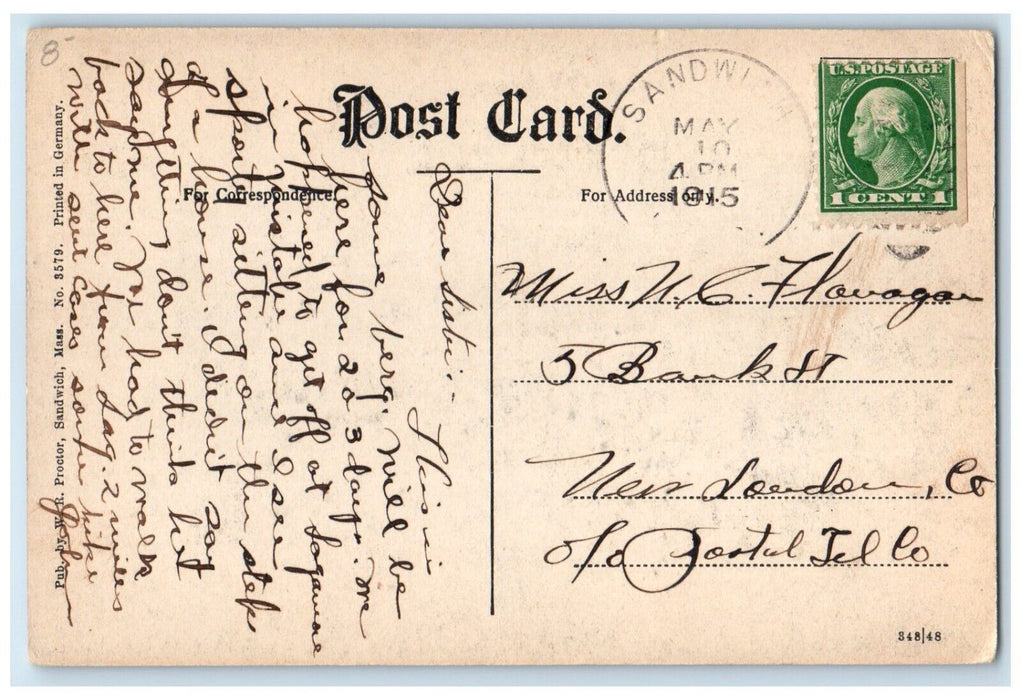 8-
Post Card.
For Correspondence.
For Address only.
SANDWICH
MAY
10
4 PM
1915
U.S. POSTAGE
1 CENT 1
Pub. by W. R. Proctor, Sandwich, Mass. No. 3579. Printed in Germany.
Dear sister: This is
some berg. Will be
here for 2 or 3 days. We
happened to get off at Sagamore
in mistake and I seen
sport sitting on the steps
of a house. I didn't say
anything don't think he
saw me. We had to walk
back to here from Sag. 2 miles
with suit cases some hike
John
Miss N. C. Flanagan
5 Bank St
New London, Co
c/o Postal Tel Co
348|48